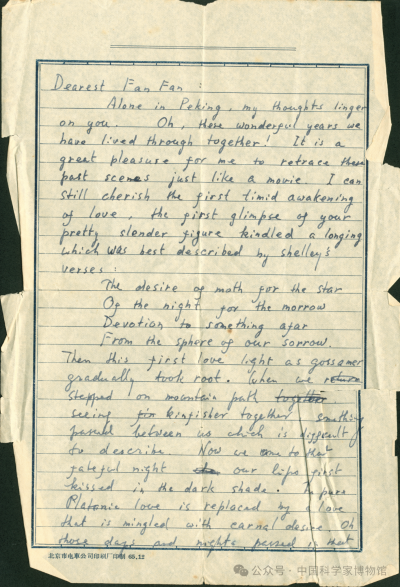 Dearest Fan Fan :
Alone in Peking, my thoughts linger
on you. Oh, those wonderful years we
have lived through together! It is a
great pleasure for me to retrace these
past scenes just like a movie. I can
still cherish the first timid awakening
of love, the first glimpse of your
pretty slender figure kindled a longing
which was best described by Shelley's
verses :
The desire of moth for the star
Of the night for the morrow
Devotion to something afar
From the sphere of our sorrow.
Then this first love light as gossamer
gradually took root. When we
stepped on mountain path together
seeing kingfisher together something
passed between us which is difficult
to describe. Now we come to that
fateful night our lips first
kissed in the dark shade. pure
Platonic love is replaced by a love
that is mingled with carnal desire. Oh
those days and nights passed in that
北京市电车公司印刷厂印制 65.12
公众号·中国科学家博物馆